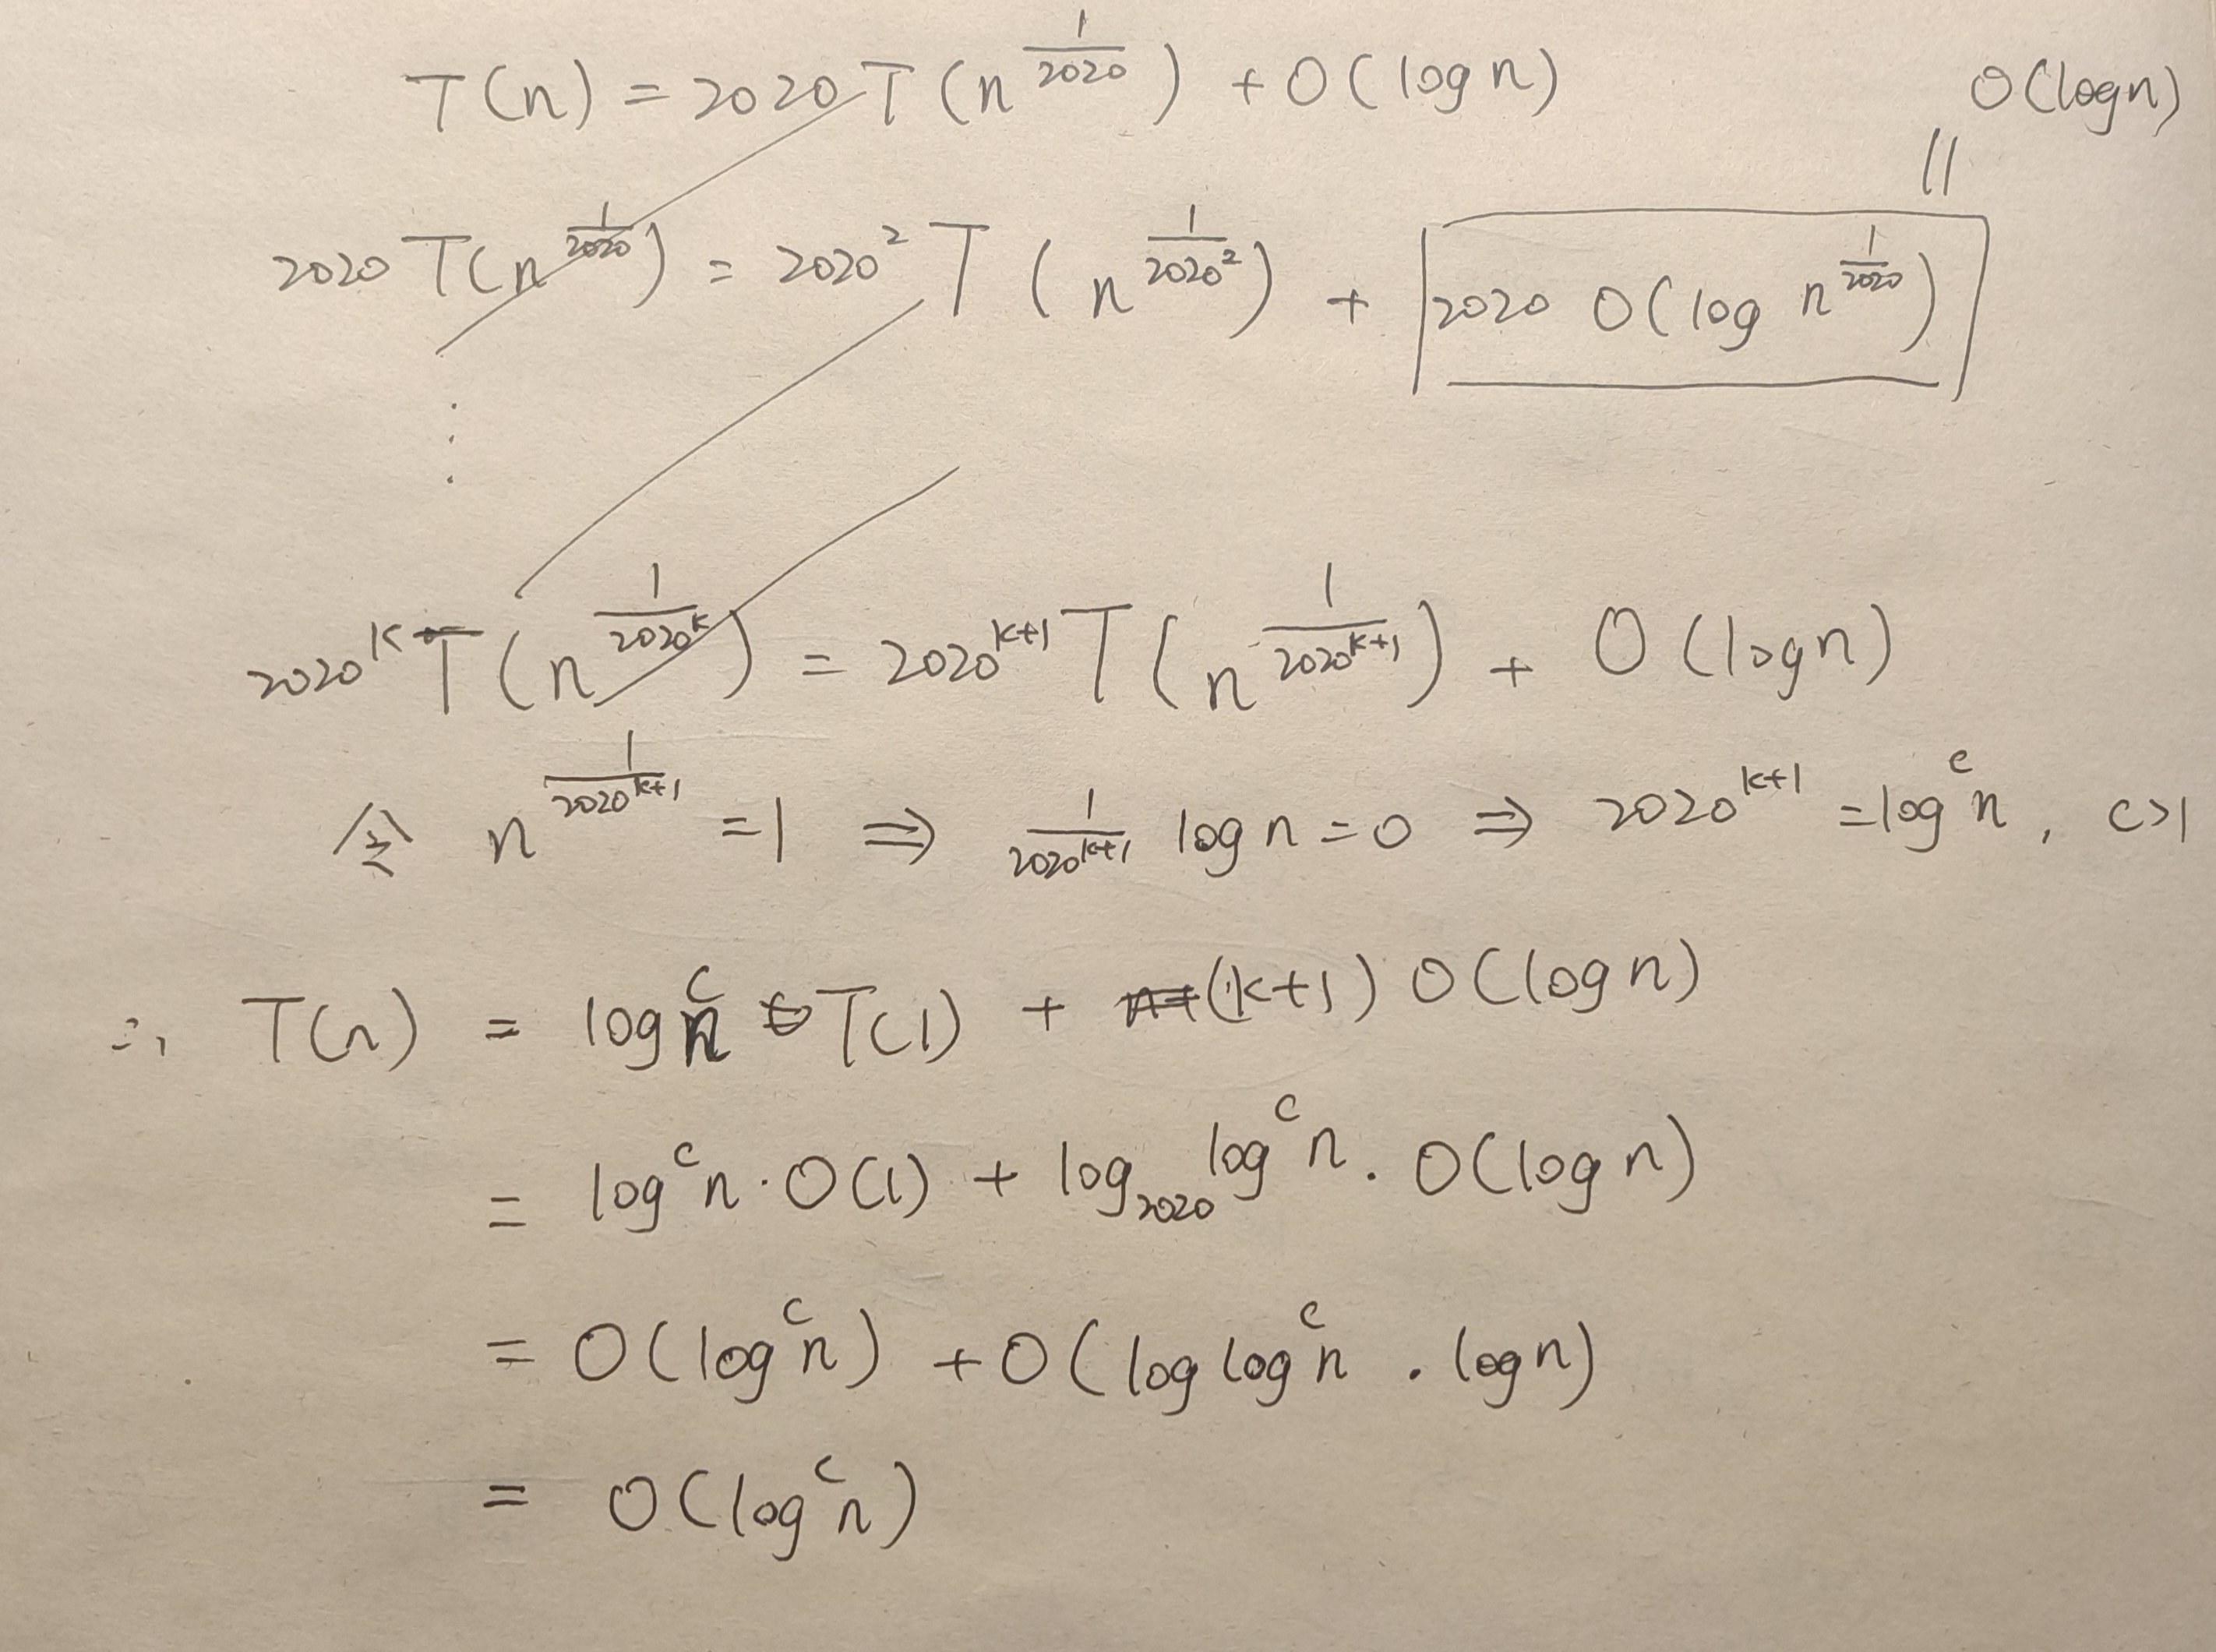 T(n) = 2020 T(n^{\frac{1}{2020}}) + O(log n)
O(log n)
||
2020 T(n^{\frac{1}{2020}}) = 2020^2 T(n^{\frac{1}{2020^2}}) + 2020 O(log n^{\frac{1}{2020}})
⋮
2020^k T(n^{\frac{1}{2020^k}}) = 2020^{k+1} T(n^{\frac{1}{2020^{k+1}}}) + O(log n)
令 n^{\frac{1}{2020^{k+1}}} = 1 ⇒ \frac{1}{2020^{k+1}} log n = 0 ⇒ 2020^{k+1} = log^c n, c>1
∴ T(n) = log^c n T(1) + (k+1) O(log n)
= log^c n · O(1) + log_{2020} log^c n · O(log n)
= O(log^c n) + O(log log^c n · log n)
= O(log^c n)